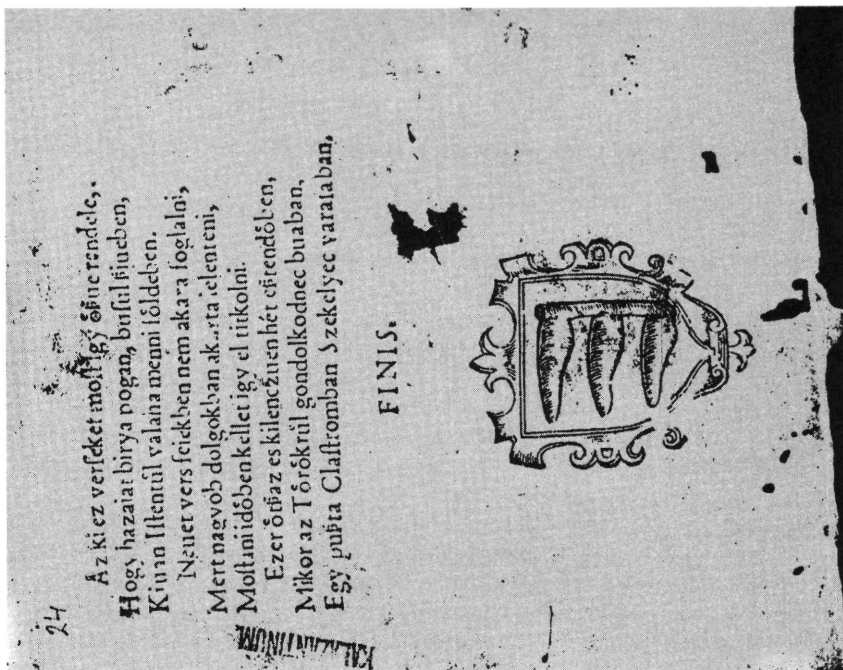 24
Az ki ez verſeket moſt igy öſzue rendele,.
Hogy hazaiat birya pogan, buſul ſziueben,
Kiuan Iſtentül valaha menni földeben.
Neuet vers feiekben nem akara foglalni,
Mert nagyob dolgokban akarta ielenteni,
Moſtani idöben kellet igy el titkolni.
Ezer ötſzaz es kilenczuen hét eſztendöben,
Mikor az Törökrül gondolkodnec buaban,
Egy puſzta Claſtromban Szekelyec varaiaban,
FINIS.